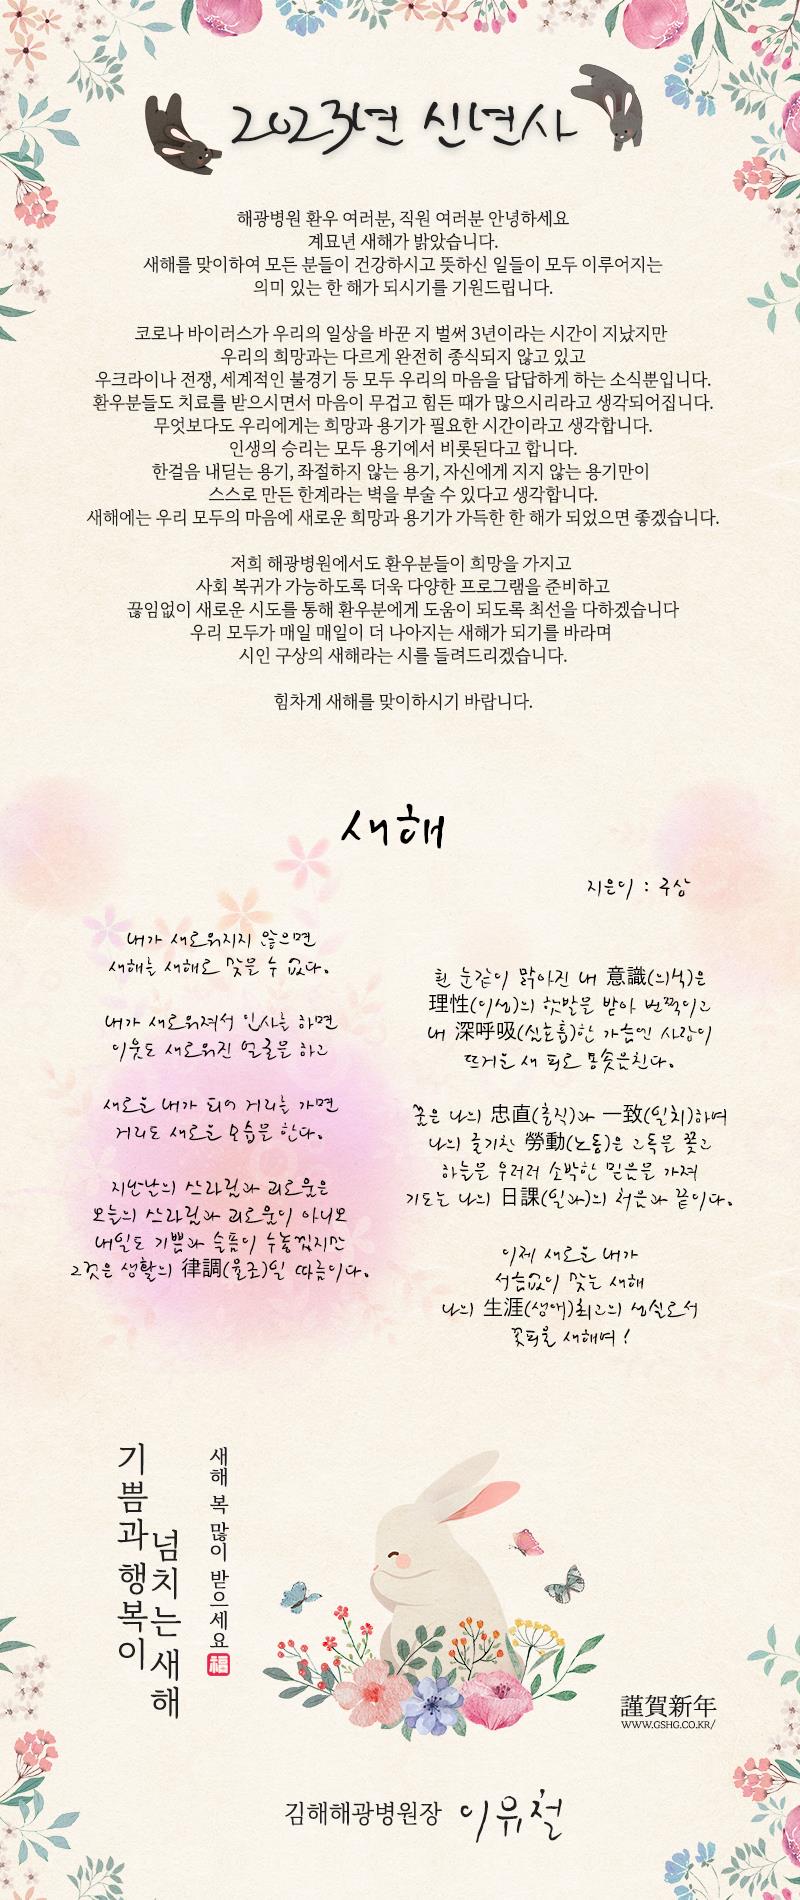 2023년 신년사
해광병원 환우 여러분, 직원 여러분 안녕하세요
계묘년 새해가 밝았습니다.
새해를 맞이하여 모든 분들이 건강하시고 뜻하신 일들이 모두 이루어지는
의미 있는 한 해가 되시기를 기원드립니다.
코로나 바이러스가 우리의 일상을 바꾼 지 벌써 3년이라는 시간이 지났지만
우리의 희망과는 다르게 완전히 종식되지 않고 있고
우크라이나 전쟁, 세계적인 불경기 등 모두 우리의 마음을 답답하게 하는 소식뿐입니다.
환우분들도 치료를 받으시면서 마음이 무겁고 힘든 때가 많으시리라고 생각되어집니다.
무엇보다도 우리에게는 희망과 용기가 필요한 시간이라고 생각합니다.
인생의 승리는 모두 용기에서 비롯된다고 합니다.
한걸음 내딛는 용기, 좌절하지 않는 용기, 자신에게 지지 않는 용기만이
스스로 만든 한계라는 벽을 부술 수 있다고 생각합니다.
새해에는 우리 모두의 마음에 새로운 희망과 용기가 가득한 한 해가 되었으면 좋겠습니다.
저희 해광병원에서도 환우분들이 희망을 가지고
사회 복귀가 가능하도록 더욱 다양한 프로그램을 준비하고
끊임없이 새로운 시도를 통해 환우분에게 도움이 되도록 최선을 다하겠습니다
우리 모두가 매일 매일이 더 나아지는 새해가 되기를 바라며
시인 구상의 새해라는 시를 들려드리겠습니다.
힘차게 새해를 맞이하시기 바랍니다.
새해
지은이 : 구상
내가 새로워지지 않으면
새해를 새해로 맞을 수 없다.
내가 새로워져서 인사를 하면
이웃도 새로워진 얼굴을 하고
새로운 내가 되어 거리를 가면
거리도 새로운 모습을 한다.
지난날의 쓰라림과 괴로움은
오늘의 쓰라림과 괴로움이 아니요
내일도 기쁨과 슬픔이 수놓겠지만
그것은 생활의 律調(율조)일 따름이다.
흰 눈같이 맑아진 내 意識(의식)은
理性(이성)의 햇발을 받아 번쩍이고
내 深呼吸(심호흡)한 가슴엔 사랑이
뜨거운 새 피로 용솟음친다.
꿈은 나의 忠直(충직)과 一致(일치)하여
나의 줄기찬 勞動(노동)은 고독을 쫓고
하늘을 우러러 소박한 믿음을 가져
기도는 나의 日課(일과)의 처음과 끝이다.
이제 새로운 내가
서슴없이 맞는 새해
나의 生涯(생애)최고의 성실로서
꽃피울 새해여 !
기쁨과 행복이
넘치는 새해
새해 복 많이 받으세요
福
謹賀新年
WWW.GSHG.CO.KR/
김해해광병원장 이유철